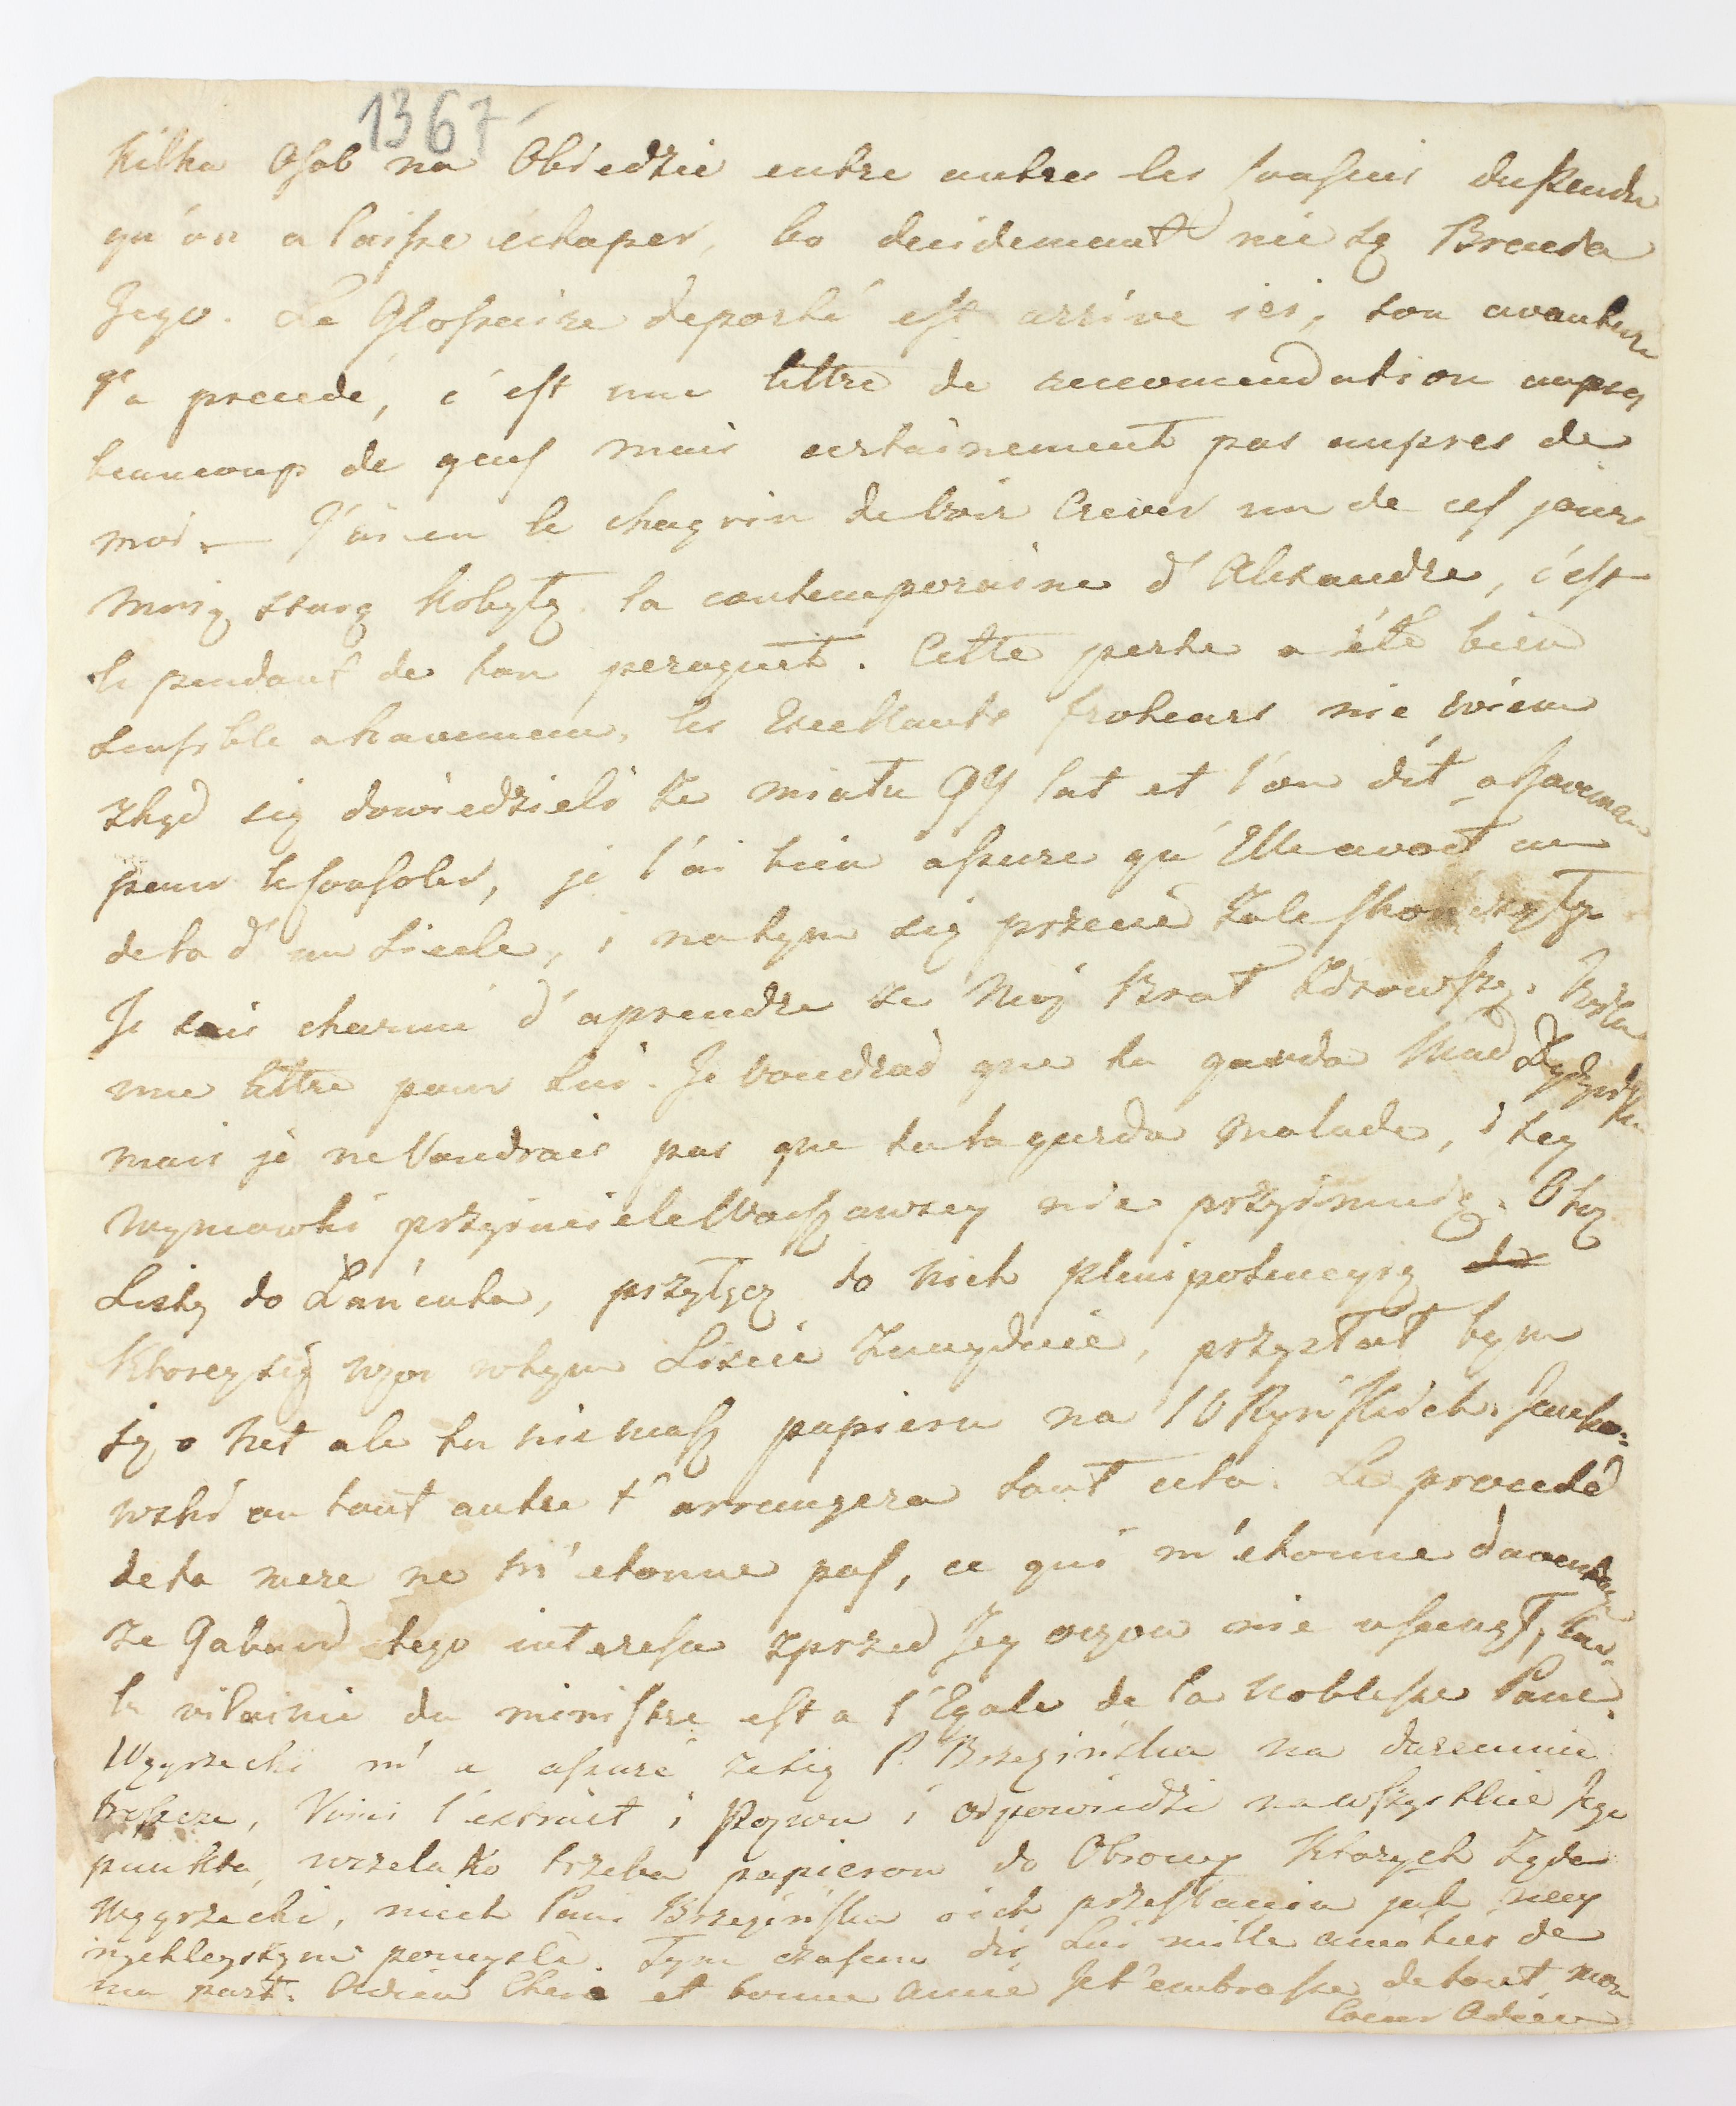 1367
Kilka Osob na Obiedzie entre autres les
qu'on a laisse echaper, bo decidement nie są Brauda
Jego. Le Glossaire deporté est arrive ici, son avanture
l'a precedé, c'est une lettre de reccomendation aupres
beaucoup de gens mais certainement pas aupres de
moi. — J'ai eu le chagrin de voir Crever un de ces jours
moią starą Kobyłę la contemporaine d'Alexandre, c'est
le pendant de ton peroquet. Cette perte a été bien
sensible a les Excellants froteurs nie wiem
zkąd się dowiedzieli że miała 99 lat et l'on dit a
pour le consoler, je l'ai bien assure qu'Elle avoit au
dela d'un siecle, i natym się przecie żale skończyły
Je suis charmé d'aprendre że Moy Brat Zdrowszy.
une lettre pour lui. Je voudrais que tu garda Mad
mais je ne Voudrais pas que tu la garda malade, i tey
wymowki przyiaciele Warszawscy nie przyimuią. Otoż
Listy do Łańcuta, przyłącz do nich plenipotencyią
Ktorey się wzor wtym Liscie znaydzie, przysłał bym
ią o Net ale tu niemasz papieru na 10 Ryńskich.
wski ou tout autre t'arrangera tout cela. Le procedé
de ta mere ne m'etonne pas, ce qui m'etonne davantage
że Gabard tego interessu zprzed Jey oczow nie usunął,
la vilainie du ministre est a l'Egale de la Noblesse Pane.
Węgrzecki m'a assuré że się P. Brzezińska na daremnie
troszcze, Voici l'extrait i Pozwu i odpowiedzi na wszystkie Jego
punkta, wszelako trzeba papierow do Obrony Ktorych żąda
Węgrzecki, niech Pani Brzezińska o ich przesłaniu jak nay
rychleyszym pomysli. Tym czasem dis Lui mille amities de
ma part. Adieu Chere et bonne Amie Je t'embrasse de tout mon
Coeur Adieu